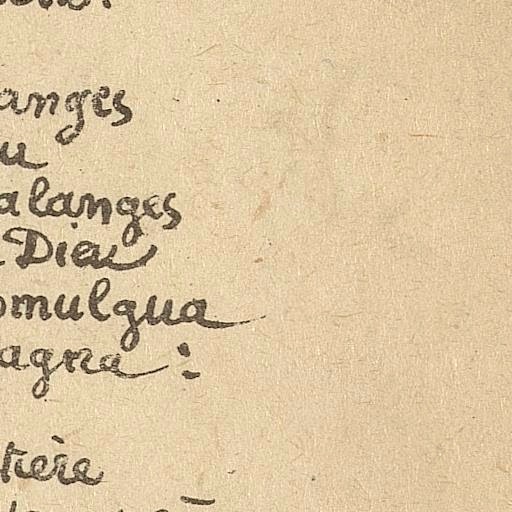 anges
u
alanges
Dieu
omulgua
agna :
tière